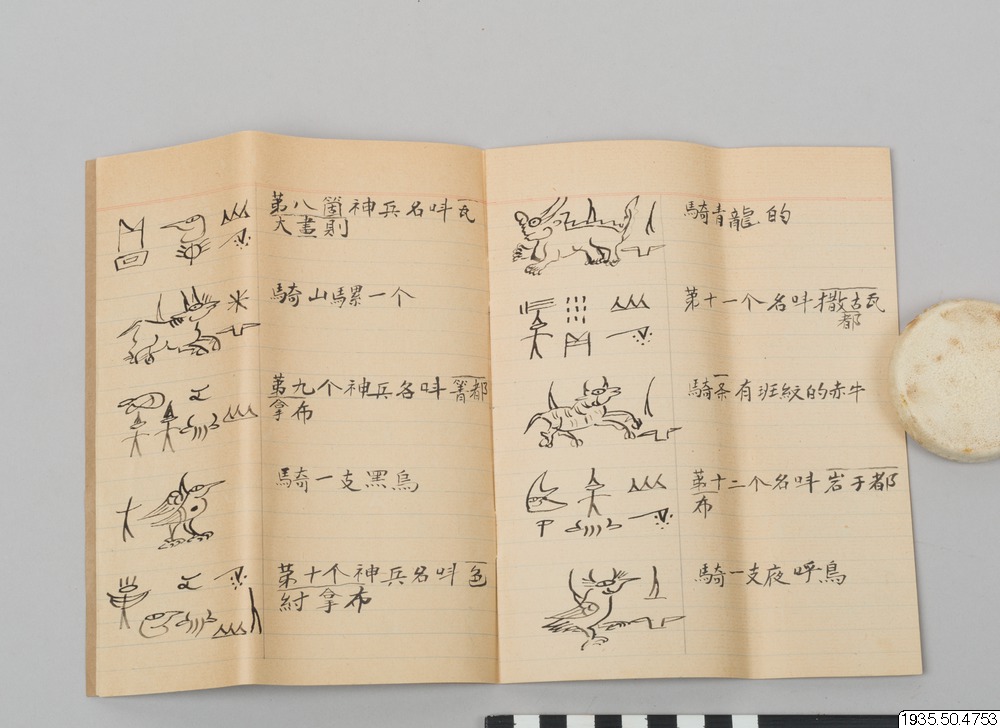 第八箇神兵名呌瓦
大畫則
騎山騾一个
第九个神兵名呌箐都
拿布
騎一支黑烏
第十个神兵名呌色
紂拿布
騎青龍的
第十一个名呌撒古瓦
都
騎一条有班紋的赤牛
第十二个名呌岩于都
布
騎一支夜呼鳥
1935.50.4753